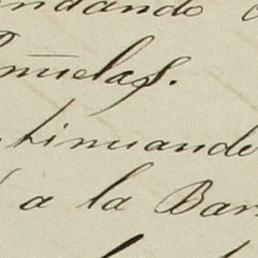 ndando
ñuelas.
tinuando
a la Bar